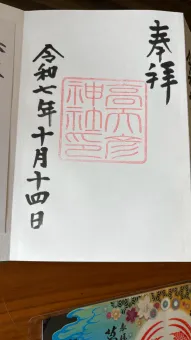 奉拝
高六彦
神社印
令和七年十月十四日